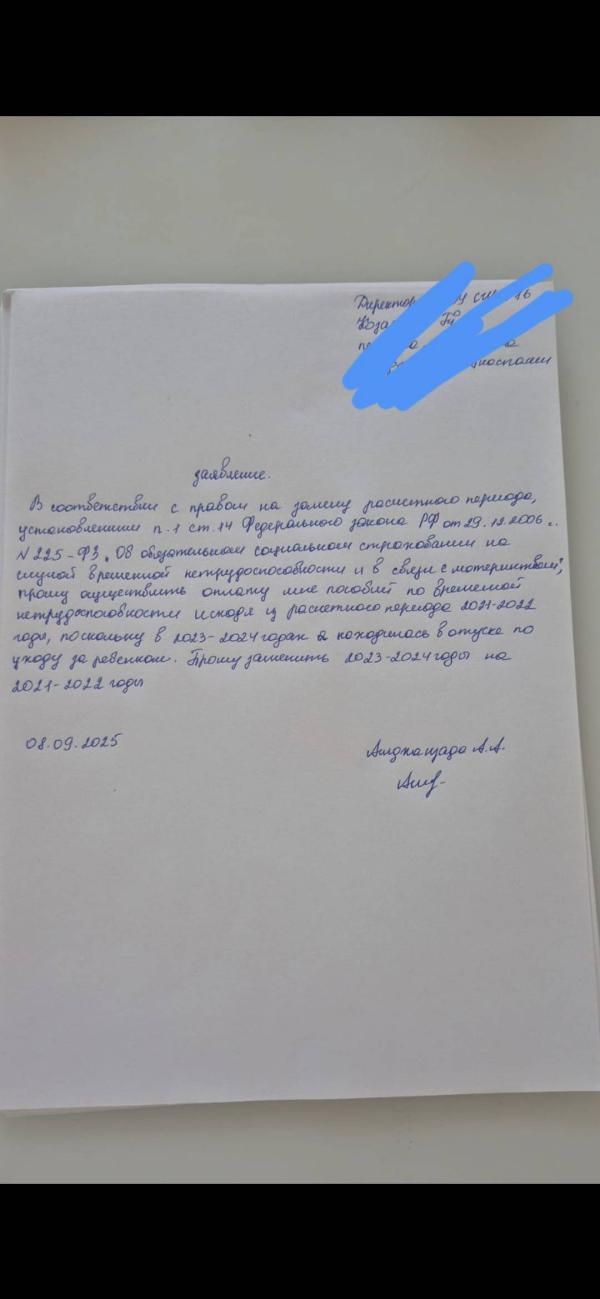 Директор 16
заявление.
В соответствии с правом на замену расчетного периода,
установленным п.1 ст.14 Федерального закона РФ от 29.12.2006 г.
N 225-ФЗ "Об обязательном социальном страховании на
случай временной нетрудоспособности и в связи с материнством",
прошу осуществить оплату мне пособий по временной
нетрудоспособности исходя из расчетного периода 2021-2022
годы, поскольку в 2023-2024 годах я находилась в отпуске по
уходу за ребенком. Прошу заменить 2023-2024 годы на
2021-2022 годы
08.09.2025
А.А.